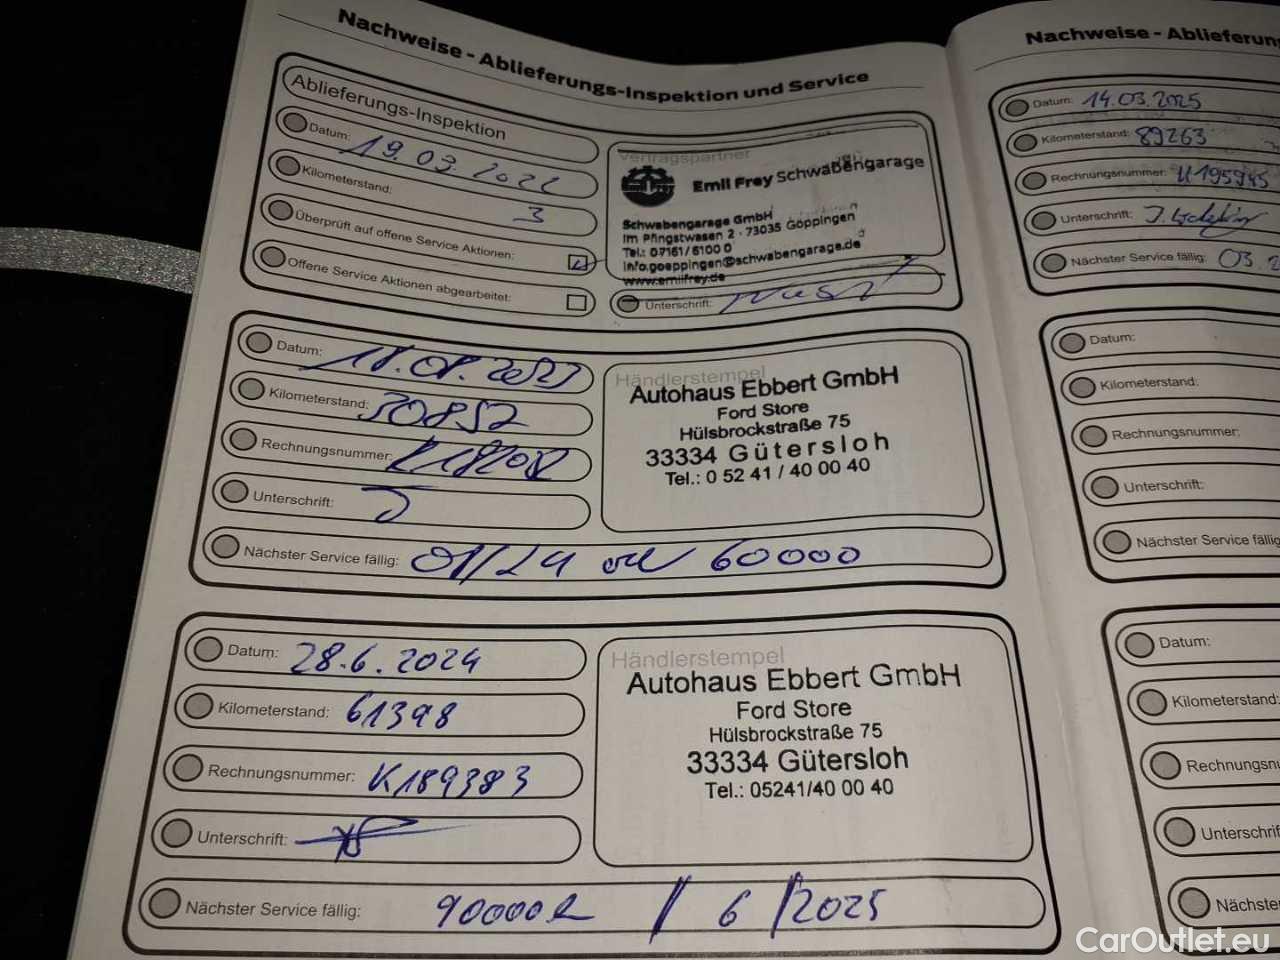 Nachweise - Ablieferungs-Inspektion und Service
Ablieferungs-Inspektion
Datum: 19.03.2022
Kilometerstand: 3
Überprüft auf offene Service Aktionen:
Offene Service Aktionen abgearbeitet:
Vertragspartner
Emil Frey Schwabengarage
Schwabengarage GmbH
Im Pfingstwasen 2 · 73035 Göppingen
Tel.: 07161/6100 0
info.goeppingen@schwabengarage.de
www.emilfrey.de
Unterschrift:
Datum: 18.08.2023
Kilometerstand: 30852
Rechnungsnummer:
Unterschrift:
Nächster Service fällig: 01/24 60000
Händlerstempel
Autohaus Ebbert GmbH
Ford Store
Hülsbrockstraße 75
33334 Gütersloh
Tel.: 0 52 41 / 40 00 40
Datum: 28.6.2024
Kilometerstand: 61398
Rechnungsnummer: K189383
Unterschrift:
Nächster Service fällig: 90000 / 6 / 2025
Händlerstempel
Autohaus Ebbert GmbH
Ford Store
Hülsbrockstraße 75
33334 Gütersloh
Tel.: 05241/40 00 40
Nachweise - Ablieferun
Datum: 14.03.2025
Kilometerstand: 89263
Rechnungsnummer:
Unterschrift:
Nächster Service fällig: 03.2
Datum:
Kilometerstand:
Rechnungsnummer:
Unterschrift:
Nächster Service fällig
Datum:
Kilometerstand:
Rechnungsnu
Unterschrif
Nächste
CarOutlet.eu